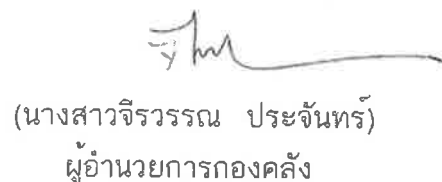 (นางสาวจีรวรรณ ประจันทร์)
ผู้อำนวยการกองคลัง